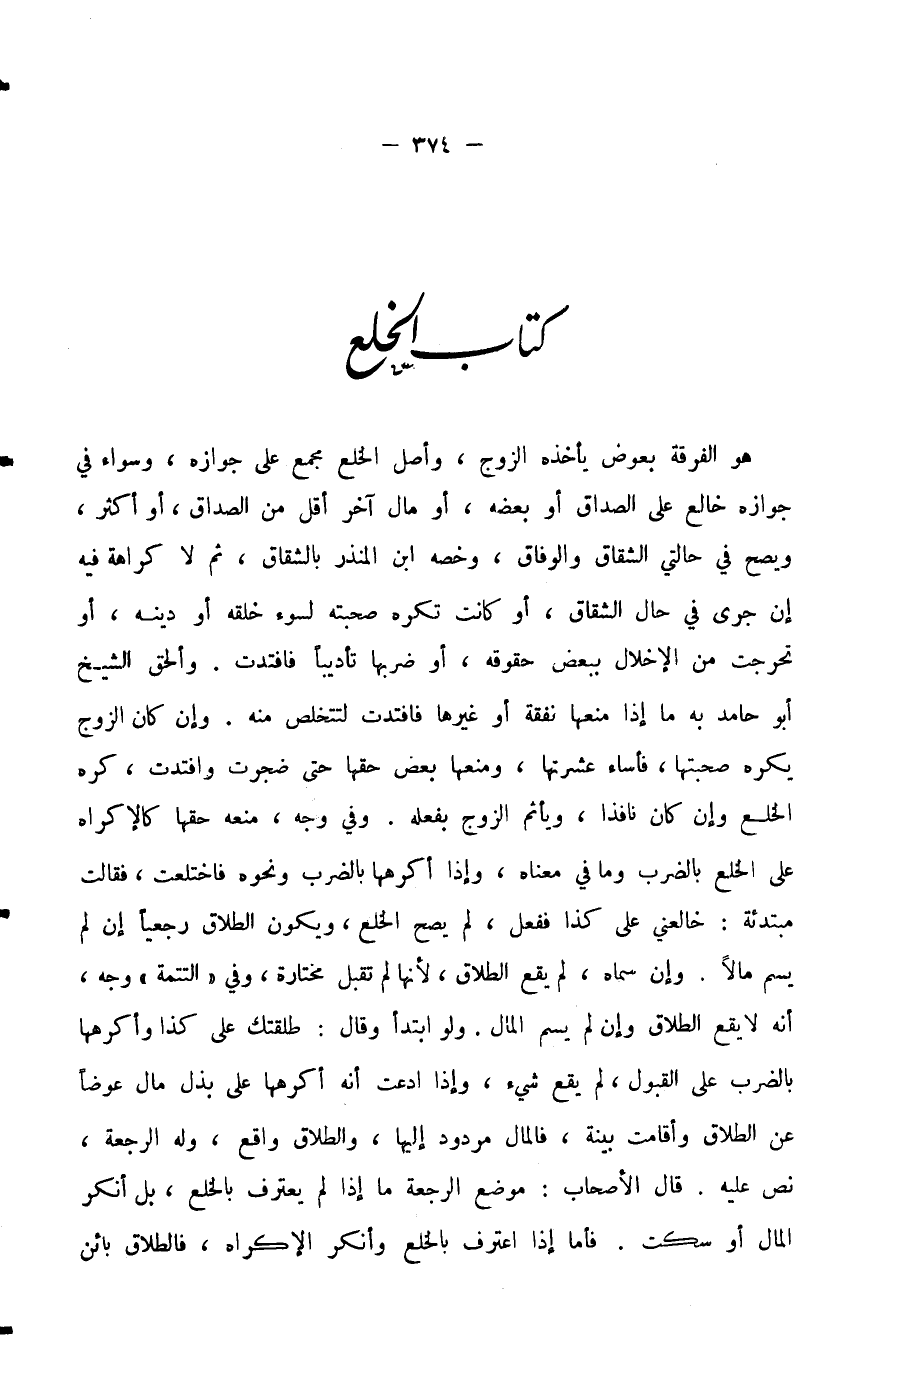 — ٣٧٤ —
كتاب الخلع
هو الفرقة بعوض يأخذه الزوج ، وأصل الخلع مجمع على جوازه ، وسواء في
جوازه خالع على الصداق أو بعضه ، أو مال آخر أقل من الصداق ، أو أكثر ،
ويصح في حالتي الشقاق والوفاق ، وخصه ابن المنذر بالشقاق ، ثم لا كراهة فيه
إن جرى في حال الشقاق ، أو كانت تكره صحبته لسوء خلقه أو دينه ، أو
تحرجت من الإخلال ببعض حقوقه ، أو ضربها تأديباً فافتدت . وألحق الشيخ
أبو حامد به ما إذا منعها نفقة أو غيرها فافتدت لتتخلص منه . وإن كان الزوج
يكره صحبتها ، فأساء عشرتها ، ومنعها بعض حقها حتى ضجرت وافتدت ، كره
الخلع وإن كان نافذا ، ويأثم الزوج بفعله . وفي وجه ، منعه حقها كالإكراه
على الخلع بالضرب وما في معناه ، وإذا أكرهها بالضرب ونحوه فاختلعت ، فقالت
مبتدئة : خالعني على كذا ففعل ، لم يصح الخلع ، ويكون الطلاق رجعياً إن لم
يسم مالاً . وإن سماه ، لم يقع الطلاق ، لأنها لم تقبل مختارة ، وفي « التتمة » وجه ،
أنه لا يقع الطلاق وإن لم يسم المال . ولو ابتدأ وقال : طلقتك على كذا وأكرهها
بالضرب على القبول ، لم يقع شيء ، وإذا ادعت أنه أكرهها على بذل مال عوضاً
عن الطلاق وأقامت بينة ، فالمال مردود إليها ، والطلاق واقع ، وله الرجعة ،
نص عليه . قال الأصحاب : موضع الرجعة ما إذا لم يعترف بالخلع ، بل أنكر
المال أو سكت . فأما إذا اعترف بالخلع وأنكر الإكراه ، فالطلاق بائن